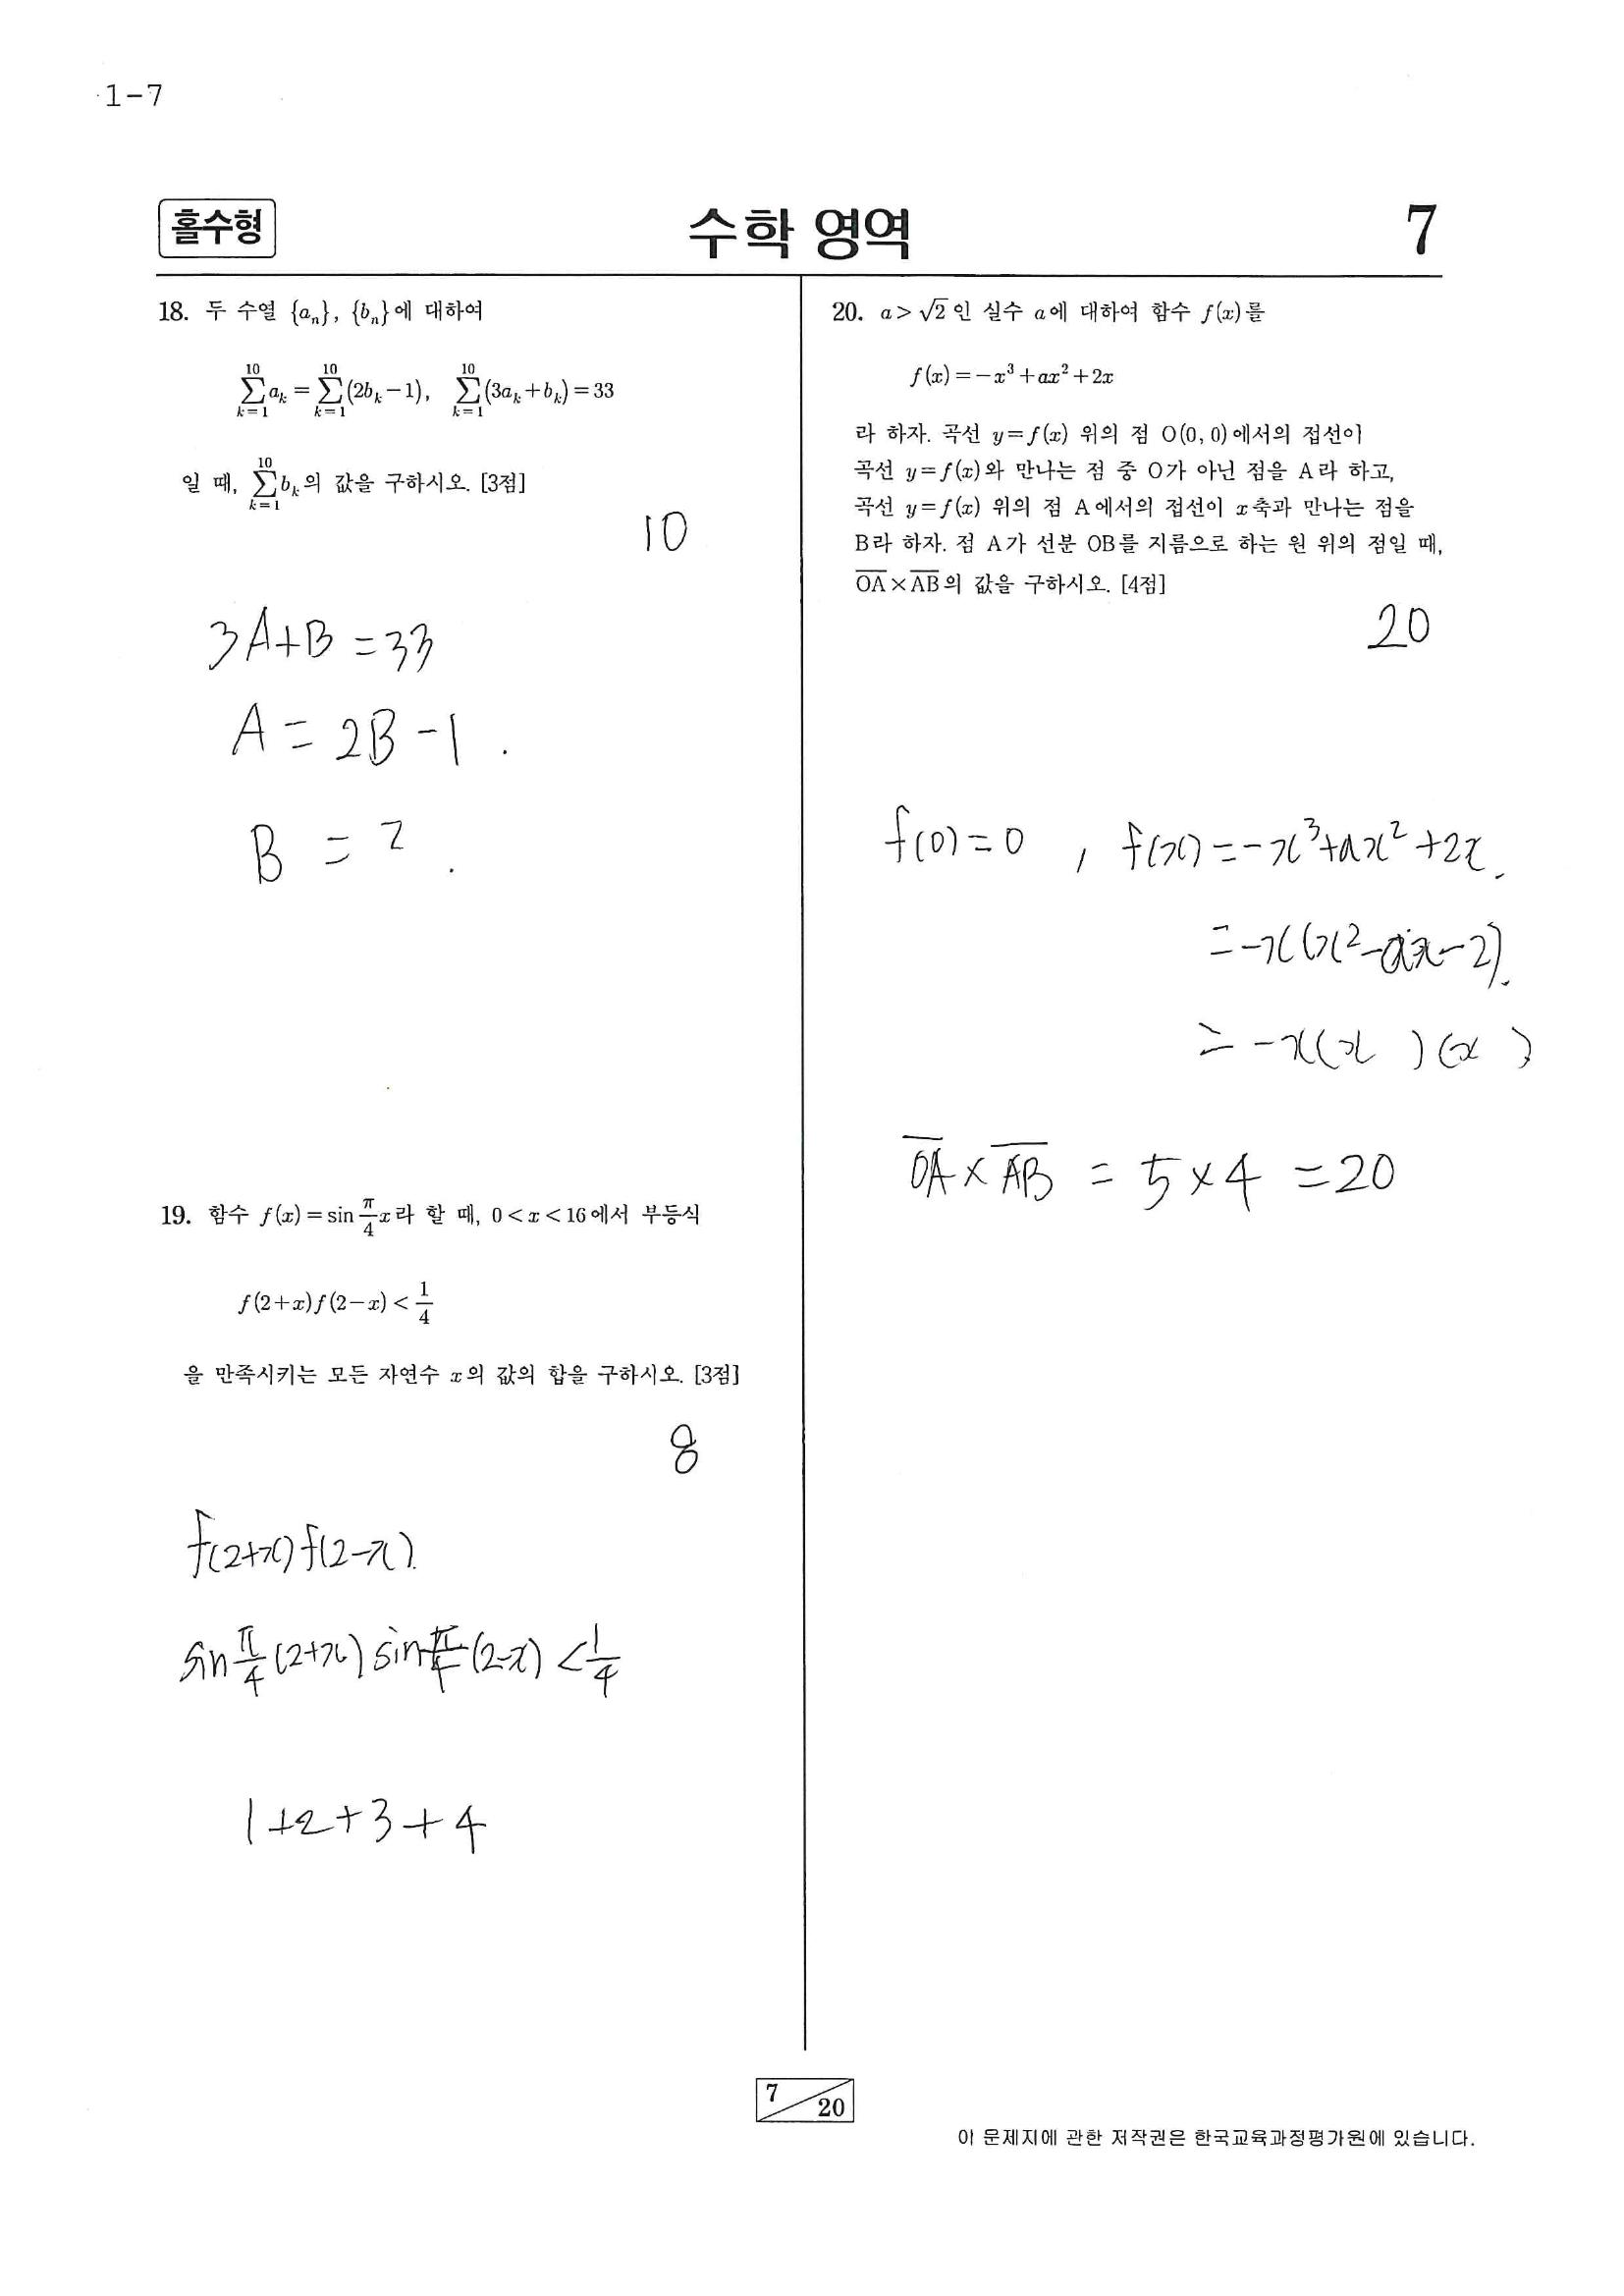 1-7
홀수형
수학 영역
7
18. 두 수열 {aₙ}, {bₙ}에 대하여
∑_{k=1}^{10} aₖ = ∑_{k=1}^{10} (2bₖ-1), ∑_{k=1}^{10} (3aₖ+bₖ) = 33
일 때, ∑_{k=1}^{10} bₖ의 값을 구하시오. [3점]
10
3A+B = 33
A = 2B-1 .
B = ? .
19. 함수 f(x) = sin π/4 x라 할 때, 0<x<16에서 부등식
f(2+x)f(2-x) < 1/4
을 만족시키는 모든 자연수 x의 값의 합을 구하시오. [3점]
8
f(2+x)f(2-x).
sin π/4 (2+x) sin π/4 (2-x) < 1/4
1+2+3+4
20. a>√2인 실수 a에 대하여 함수 f(x)를
f(x) = -x³+ax²+2x
라 하자. 곡선 y=f(x) 위의 점 O(0, 0)에서의 접선이
곡선 y=f(x)와 만나는 점 중 O가 아닌 점을 A라 하고,
곡선 y=f(x) 위의 점 A에서의 접선이 x축과 만나는 점을
B라 하자. 점 A가 선분 OB를 지름으로 하는 원 위의 점일 때,
O̅A̅×A̅B̅의 값을 구하시오. [4점]
20
f(0)=0 , f(x)=-x³+ax²+2x.
=-x(x²-ax-2).
= -x(x )(x )
O̅A̅×A̅B̅ = 5×4 =20
7
20
이 문제지에 관한 저작권은 한국교육과정평가원에 있습니다.